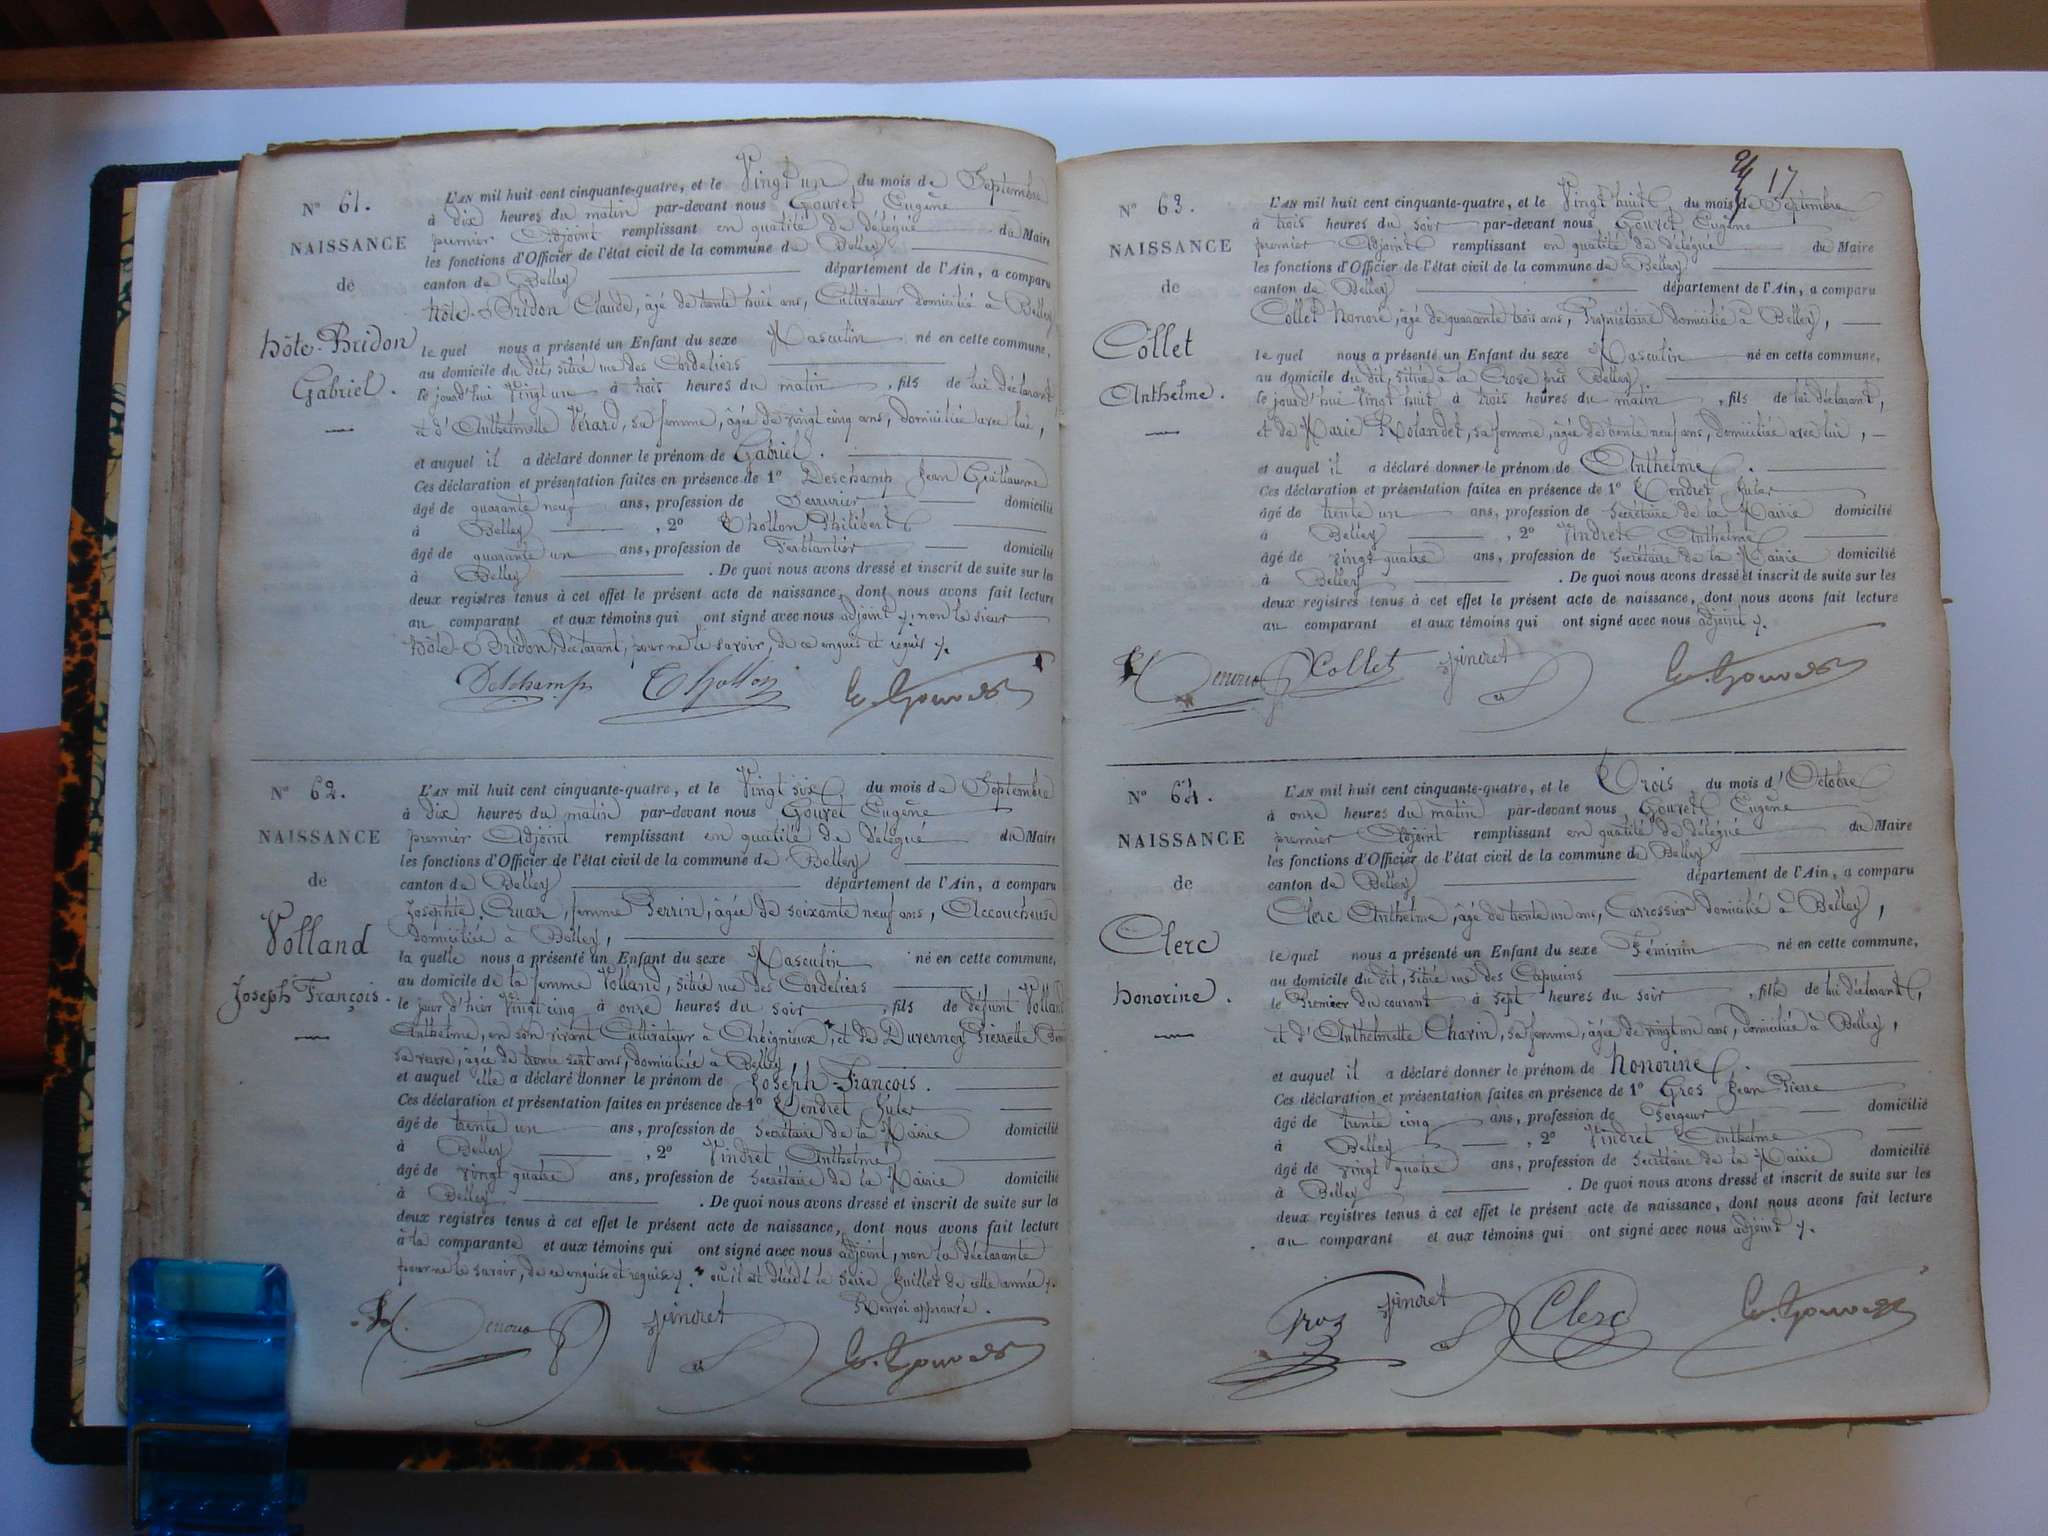 N° 61.
NAISSANCE
de
hôte-Bridon
Gabriel.
L'AN mil huit cent cinquante-quatre, et le Vingt un du mois de Septembre
à dix heures du matin par-devant nous Gouvet Eugène
premier Adjoint remplissant en qualité de délégué du Maire
les fonctions d'Officier de l'état civil de la commune de Belley
canton de Belley département de l'Ain, a comparu
hôte-Bridon Claude, âgé de trente huit ans, Cultivateur domicilié à Belley
le quel nous a présenté un Enfant du sexe Masculin né en cette commune,
au domicile du dit, situé rue des Cordeliers
le jourd'hui Vingt un à trois heures du matin, fils de lui déclarant
et d'Anthelmette Vérard, sa femme, âgée de vingt cinq ans, domiciliée avec lui,
et auquel il a déclaré donner le prénom de Gabriel.
Ces déclaration et présentation faites en présence de 1° Deschamp Jean Guillaume
âgé de quarante neuf ans, profession de Serrurier domicilié
à Belley, 2° Thollon Philibert
âgé de quarante un ans, profession de Ferblantier domicilié
à Belley. De quoi nous avons dressé et inscrit de suite sur les
deux registres tenus à cet effet le présent acte de naissance, dont nous avons fait lecture
au comparant et aux témoins qui ont signé avec nous adjoint, non le sieur
hôte-Bridon, déclarant, pour ne le savoir, de ce enquis et requis.
Deschamp Thollon E. Gouvet
N° 62.
NAISSANCE
de
Volland
Joseph François.
L'AN mil huit cent cinquante-quatre, et le Vingt six du mois de Septembre
à dix heures du matin par-devant nous Gouvet Eugène
premier Adjoint remplissant en qualité de délégué du Maire
les fonctions d'Officier de l'état civil de la commune de Belley
canton de Belley département de l'Ain, a comparu
Josephte Cruaz, femme Perrin, âgée de soixante neuf ans, Accoucheuse
domiciliée à Belley,
la quelle nous a présenté un Enfant du sexe Masculin né en cette commune,
au domicile de la femme Volland, situé rue des Cordeliers
le jour d'hier Vingt cinq à onze heures du soir, fils de défunt Volland
Anthelme, en son vivant Cultivateur à Arbignieux, et de Duvernay Pierrette
sa veuve, âgée de trente sept ans, domiciliée à Belley,
et auquel elle a déclaré donner le prénom de Joseph-François.
Ces déclaration et présentation faites en présence de 1° Tendret Jules
âgé de trente un ans, profession de Secrétaire de la Mairie domicilié
à Belley, 2° Vindret Anthelme
âgé de vingt quatre ans, profession de Secrétaire de la Mairie domicilié
à Belley. De quoi nous avons dressé et inscrit de suite sur les
deux registres tenus à cet effet le présent acte de naissance, dont nous avons fait lecture
à la comparante et aux témoins qui ont signé avec nous adjoint, non la déclarante
pour ne le savoir, de ce enquise et requise. où il est décédé le Juillet de cette année.
Renvoi approuvé.
Vindret E. Gouvet
17
N° 63.
NAISSANCE
de
Collet
Anthelme.
L'AN mil huit cent cinquante-quatre, et le Vingt huit du mois de Septembre
à trois heures du soir par-devant nous Gouvet Eugène
premier Adjoint remplissant en qualité de délégué du Maire
les fonctions d'Officier de l'état civil de la commune de Belley
canton de Belley département de l'Ain, a comparu
Collet honoré, âgé de quarante trois ans, Propriétaire domicilié à Belley,
le quel nous a présenté un Enfant du sexe Masculin né en cette commune,
au domicile du dit, situé à la Croze près Belley
le jourd'hui Vingt huit à trois heures du matin, fils de lui déclarant,
et de Marie Rolandet, sa femme, âgée de trente neuf ans, domiciliée avec lui,
et auquel il a déclaré donner le prénom de Anthelme.
Ces déclaration et présentation faites en présence de 1° Tendret Jules
âgé de trente un ans, profession de Secrétaire de la Mairie domicilié
à Belley, 2° Vindret Anthelme
âgé de vingt quatre ans, profession de Secrétaire de la Mairie domicilié
à Belley. De quoi nous avons dressé et inscrit de suite sur les
deux registres tenus à cet effet le présent acte de naissance, dont nous avons fait lecture
au comparant et aux témoins qui ont signé avec nous adjoint.
Collet Vindret E. Gouvet
N° 64.
NAISSANCE
de
Clerc
honorine.
L'AN mil huit cent cinquante-quatre, et le Trois du mois d'Octobre
à onze heures du matin par-devant nous Gouvet Eugène
premier Adjoint remplissant en qualité de délégué du Maire
les fonctions d'Officier de l'état civil de la commune de Belley
canton de Belley département de l'Ain, a comparu
Clerc Anthelme, âgé de trente un ans, Carrossier domicilié à Belley,
le quel nous a présenté un Enfant du sexe Féminin né en cette commune,
au domicile du dit, situé rue des Capucins
le Premier du courant à sept heures du soir, fille de lui déclarant,
et d'Anthelmette Chavin, sa femme, âgée de vingt un ans, domiciliée à Belley,
et auquel il a déclaré donner le prénom de honorine
Ces déclaration et présentation faites en présence de 1° Gros Jean Pierre
âgé de trente cinq ans, profession de Forgeur domicilié
à Belley, 2° Vindret Anthelme
âgé de vingt quatre ans, profession de Secrétaire de la Mairie domicilié
à Belley. De quoi nous avons dressé et inscrit de suite sur les
deux registres tenus à cet effet le présent acte de naissance, dont nous avons fait lecture
au comparant et aux témoins qui ont signé avec nous adjoint.
Gros Vindret Clerc E. Gouvet